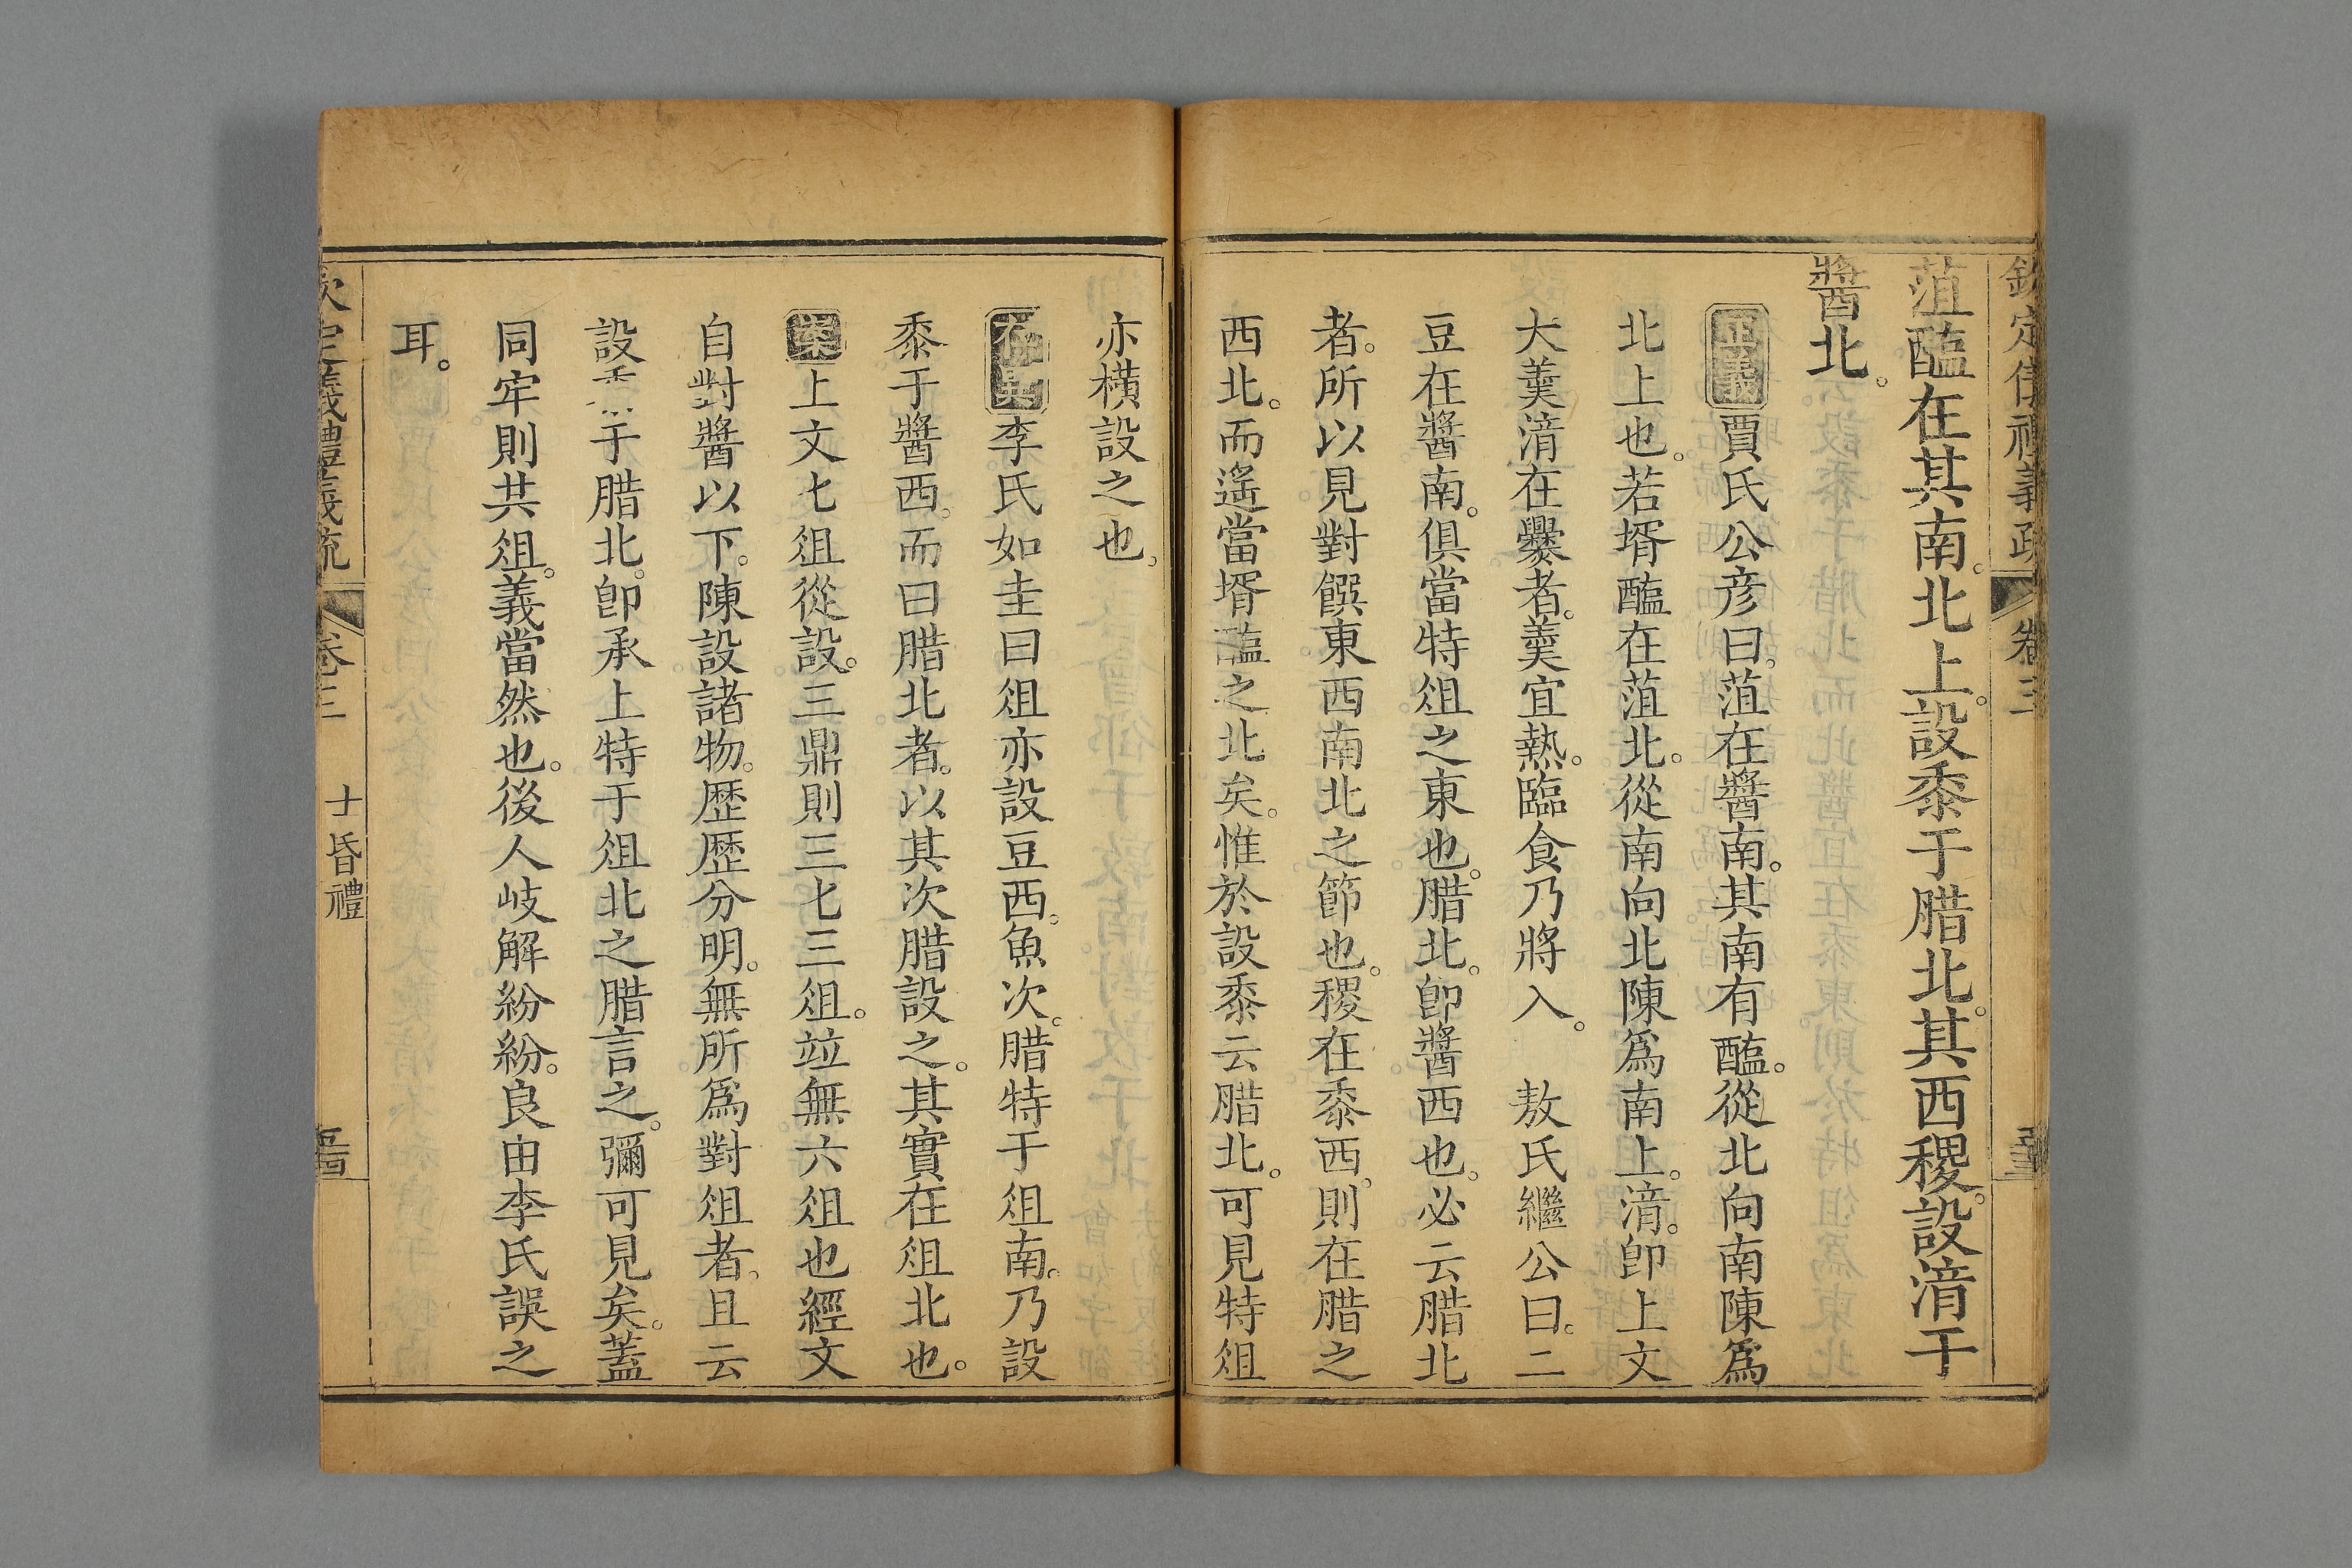 欽定儀禮義疏 卷三
菹醢在其南。北上。設黍于腊北。其西稷。設湆于
醬北。
正義賈氏公彦曰。菹在醬南。其南有醢。從北向南陳爲
北上也。若壻醢在菹北。從南向北陳爲南上。湆。卽上文
大羮湆在爨者。羮宜熱。臨食乃將入。 敖氏繼公曰。二
豆在醬南。俱當特俎之東也。腊北。卽醬西也。必云腊北
者。所以見對饌東西南北之節也。稷在黍西。則在腊之
西北。而遙當壻醢之北矣。惟於設黍云腊北。可見特俎
亦橫設之也。
存異李氏如圭曰俎亦設豆西。魚次。腊特于俎南。乃設
黍于醬西。而曰腊北者。以其次腊設之。其實在俎北也。
案上文七俎從設。三鼎則三七三俎。竝無六俎也經文
自對醬以下。陳設諸物。歷歷分明。無所爲對俎者。且云
設黍于腊北。卽承上特于俎北之腊言之。彌可見矣。蓋
同牢則共俎。義當然也。後人岐解紛紛。良由李氏誤之
耳。
欽定儀禮義疏 卷三 士昏禮